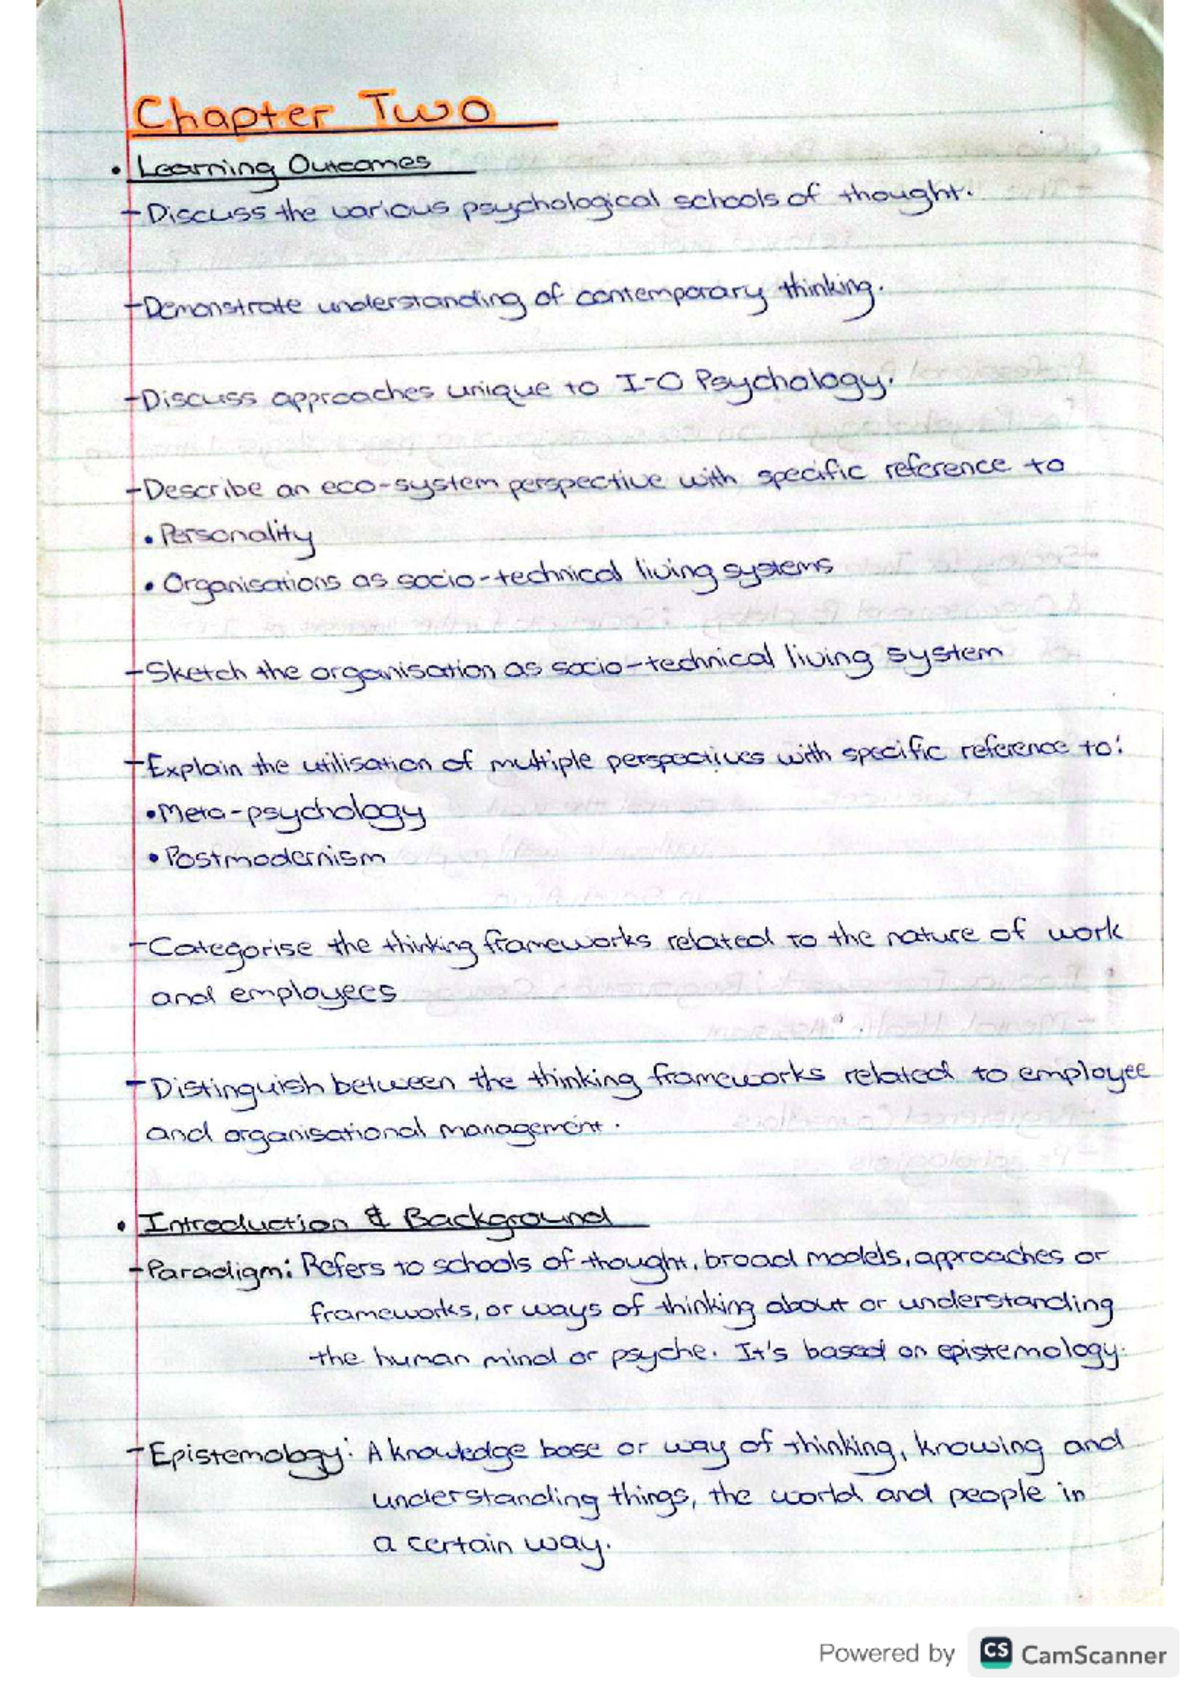 Chapter Two
• Learning Outcomes
- Discuss the various psychological schools of thought.
- Demonstrate understanding of contemporary thinking.
- Discuss approaches unique to I-O Psychology.
- Describe an eco-system perspective with specific reference to
• Personality
• Organisations as socio-technical living systems
- Sketch the organisation as socio-technical living system
- Explain the utilisation of multiple perspectives with specific reference to:
• Meta-psychology
• Postmodernism
- Categorise the thinking frameworks related to the nature of work
and employees
- Distinguish between the thinking frameworks related to employee
and organisational management.
• Introduction & Background
- Paradigm: Refers to schools of thought, broad models, approaches or
frameworks, or ways of thinking about or understanding
the human mind or psyche. It's based on epistemology.
- Epistemology: A knowledge base or way of thinking, knowing and
understanding things, the world and people in
a certain way.
Powered by CS CamScanner